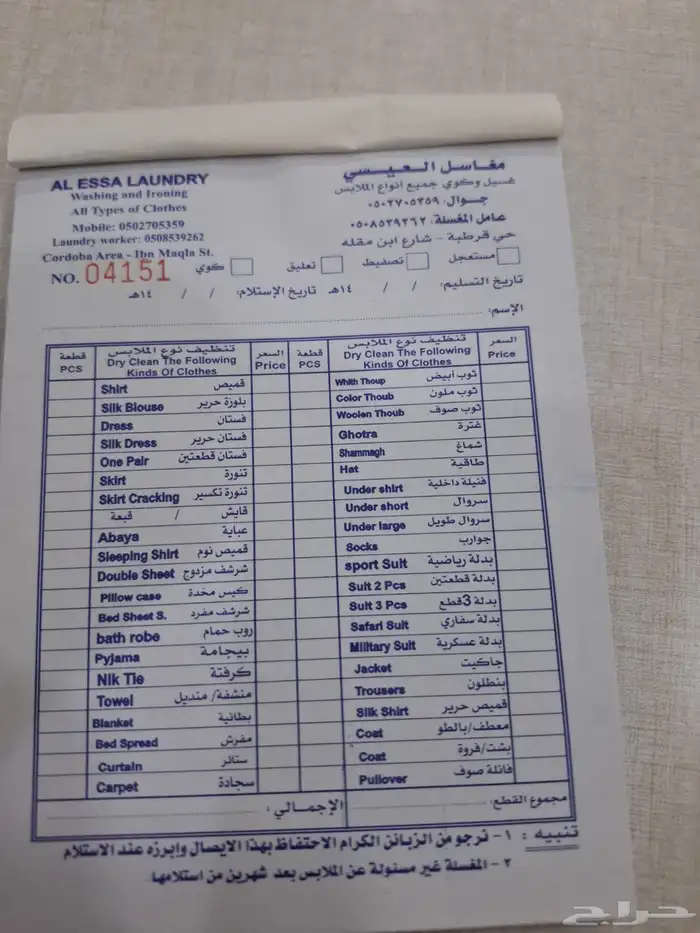 AL ESSA LAUNDRY
Washing and Ironing
All Types of Clothes
Mobile: 0502705359
Laundry worker: 0508539262
Cordoba Area - Ibn Maqla St.
NO. 04151
مغاسل العيسي
غسيل وكوي جميع أنواع الملابس
جوال: ٠٥٠٢٧٠٥٣٥٩
عامل المغسلة: ٠٥٠٨٥٣٩٢٦٢
حي قرطبة - شارع ابن مقله
مستعجل تصفيط تعليق كوي
تاريخ التسليم: / / ١٤هـ تاريخ الإستلام: / / ١٤هـ
الإسم:
قطعة PCS
تنظيف نوع الملابس
Dry Clean The Following
Kinds Of Clothes
السعر Price
قطعة PCS
تنظيف نوع الملابس
Dry Clean The Following
Kinds Of Clothes
السعر Price
Shirt قميص
Silk Blouse بلوزة حرير
Dress فستان
Silk Dress فستان حرير
One Pair فستان قطعتين
Skirt تنورة
Skirt Cracking تنورة تكسير
قايش / قبعة
Abaya عباية
Sleeping Shirt قميص نوم
Double Sheet شرشف مزدوج
Pillow case كيس مخدة
Bed Sheet S. شرشف مفرد
bath robe روب حمام
Pyjama بيجامة
Nik Tie كرفتة
Towel منشفة/ منديل
Blanket بطانية
Bed Spread مفرش
Curtain ستائر
Carpet سجادة
Whith Thoup ثوب أبيض
Color Thoub ثوب ملون
Woolen Thoub ثوب صوف
Ghotra غترة
Shammagh شماغ
Hat طاقية
Under shirt فنيلة داخلية
Under short سروال
Under large سروال طويل
Socks جوارب
sport Suit بدلة رياضية
Suit 2 Pcs بدلة قطعتين
Suit 3 Pcs بدلة 3قطع
Safari Suit بدلة سفاري
Military Suit بدلة عسكرية
Jacket جاكيت
Trousers بنطلون
Silk Shirt قميص حرير
Coat معطف/بالطو
Coat بشت/فروة
Pullover فانلة صوف
مجموع القطع: الإجمالي:
تنبيه : ١- نرجو من الزبائن الكرام الاحتفاظ بهذا الايصال وإبرزه عند الاستلام
٢- المغسلة غير مسئولة عن الملابس بعد شهرين من استلامها.
حراج